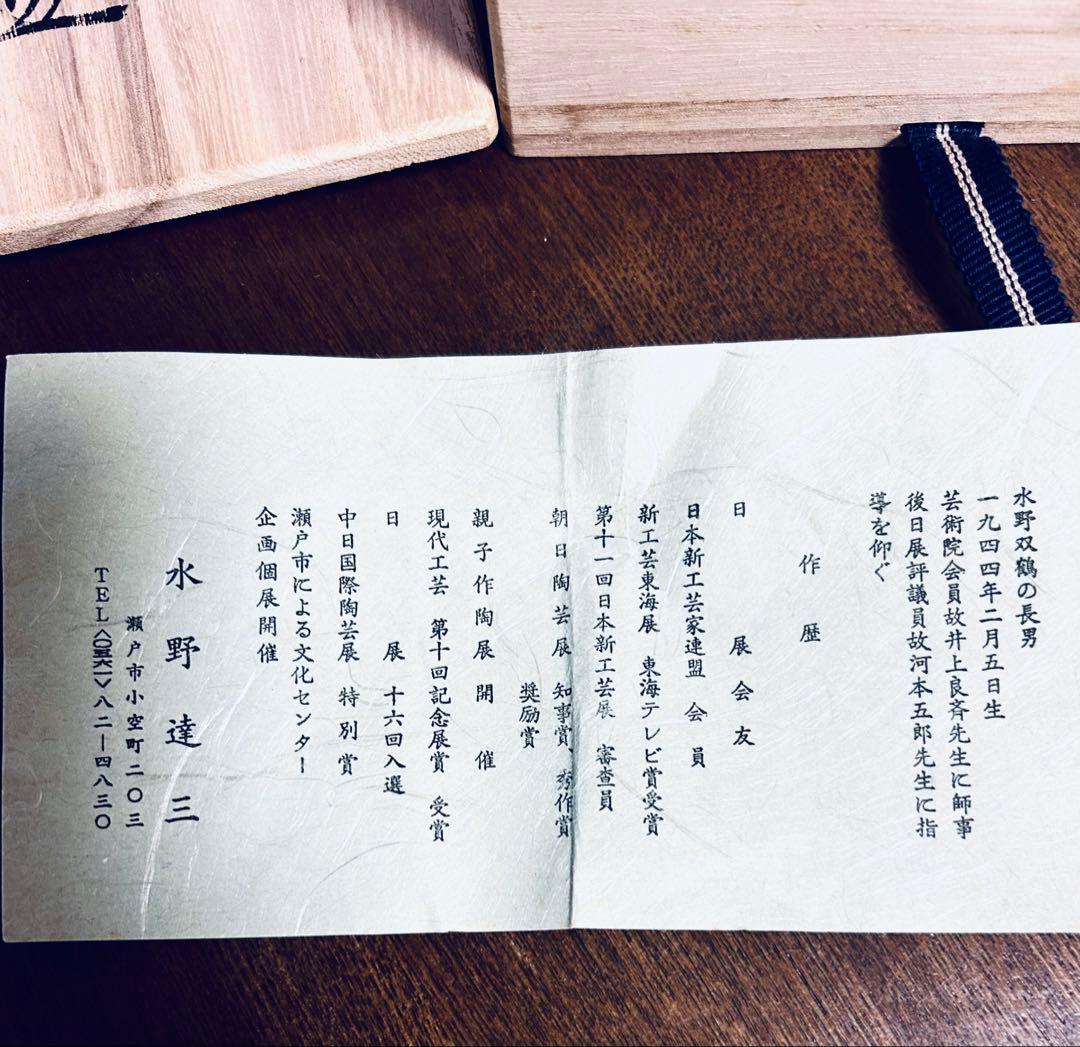 水野双鶴の長男
一九四四年二月五日生
芸術院会員故井上良斉先生に師事
後日展評議員故河本五郎先生に指
導を仰ぐ
作歴
日展会友
日本新工芸家連盟 会員
新工芸東海展 東海テレビ賞受賞
第十一回日本新工芸展 審査員
朝日陶芸展 知事賞、秀作賞
奨励賞
親子作陶展 開催
現代工芸 第十回記念展賞 受賞
日展 十六回入選
中日国際陶芸展 特別賞
瀬戸市による文化センター
企画個展開催
水野達三
瀬戸市小空町二〇三
TEL〈〇五六一〉八二ー四八三〇